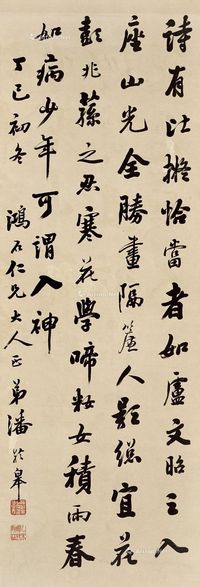 詩有比擬恰當者如盧文昭三入
座山光全勝畫隔簾人影總宜花
彭兆蓀之忍寒花學啼妝女積雨春
如病少年可謂入神
丁巳初冬
鴻石仁兄大人正弟潘齡皋